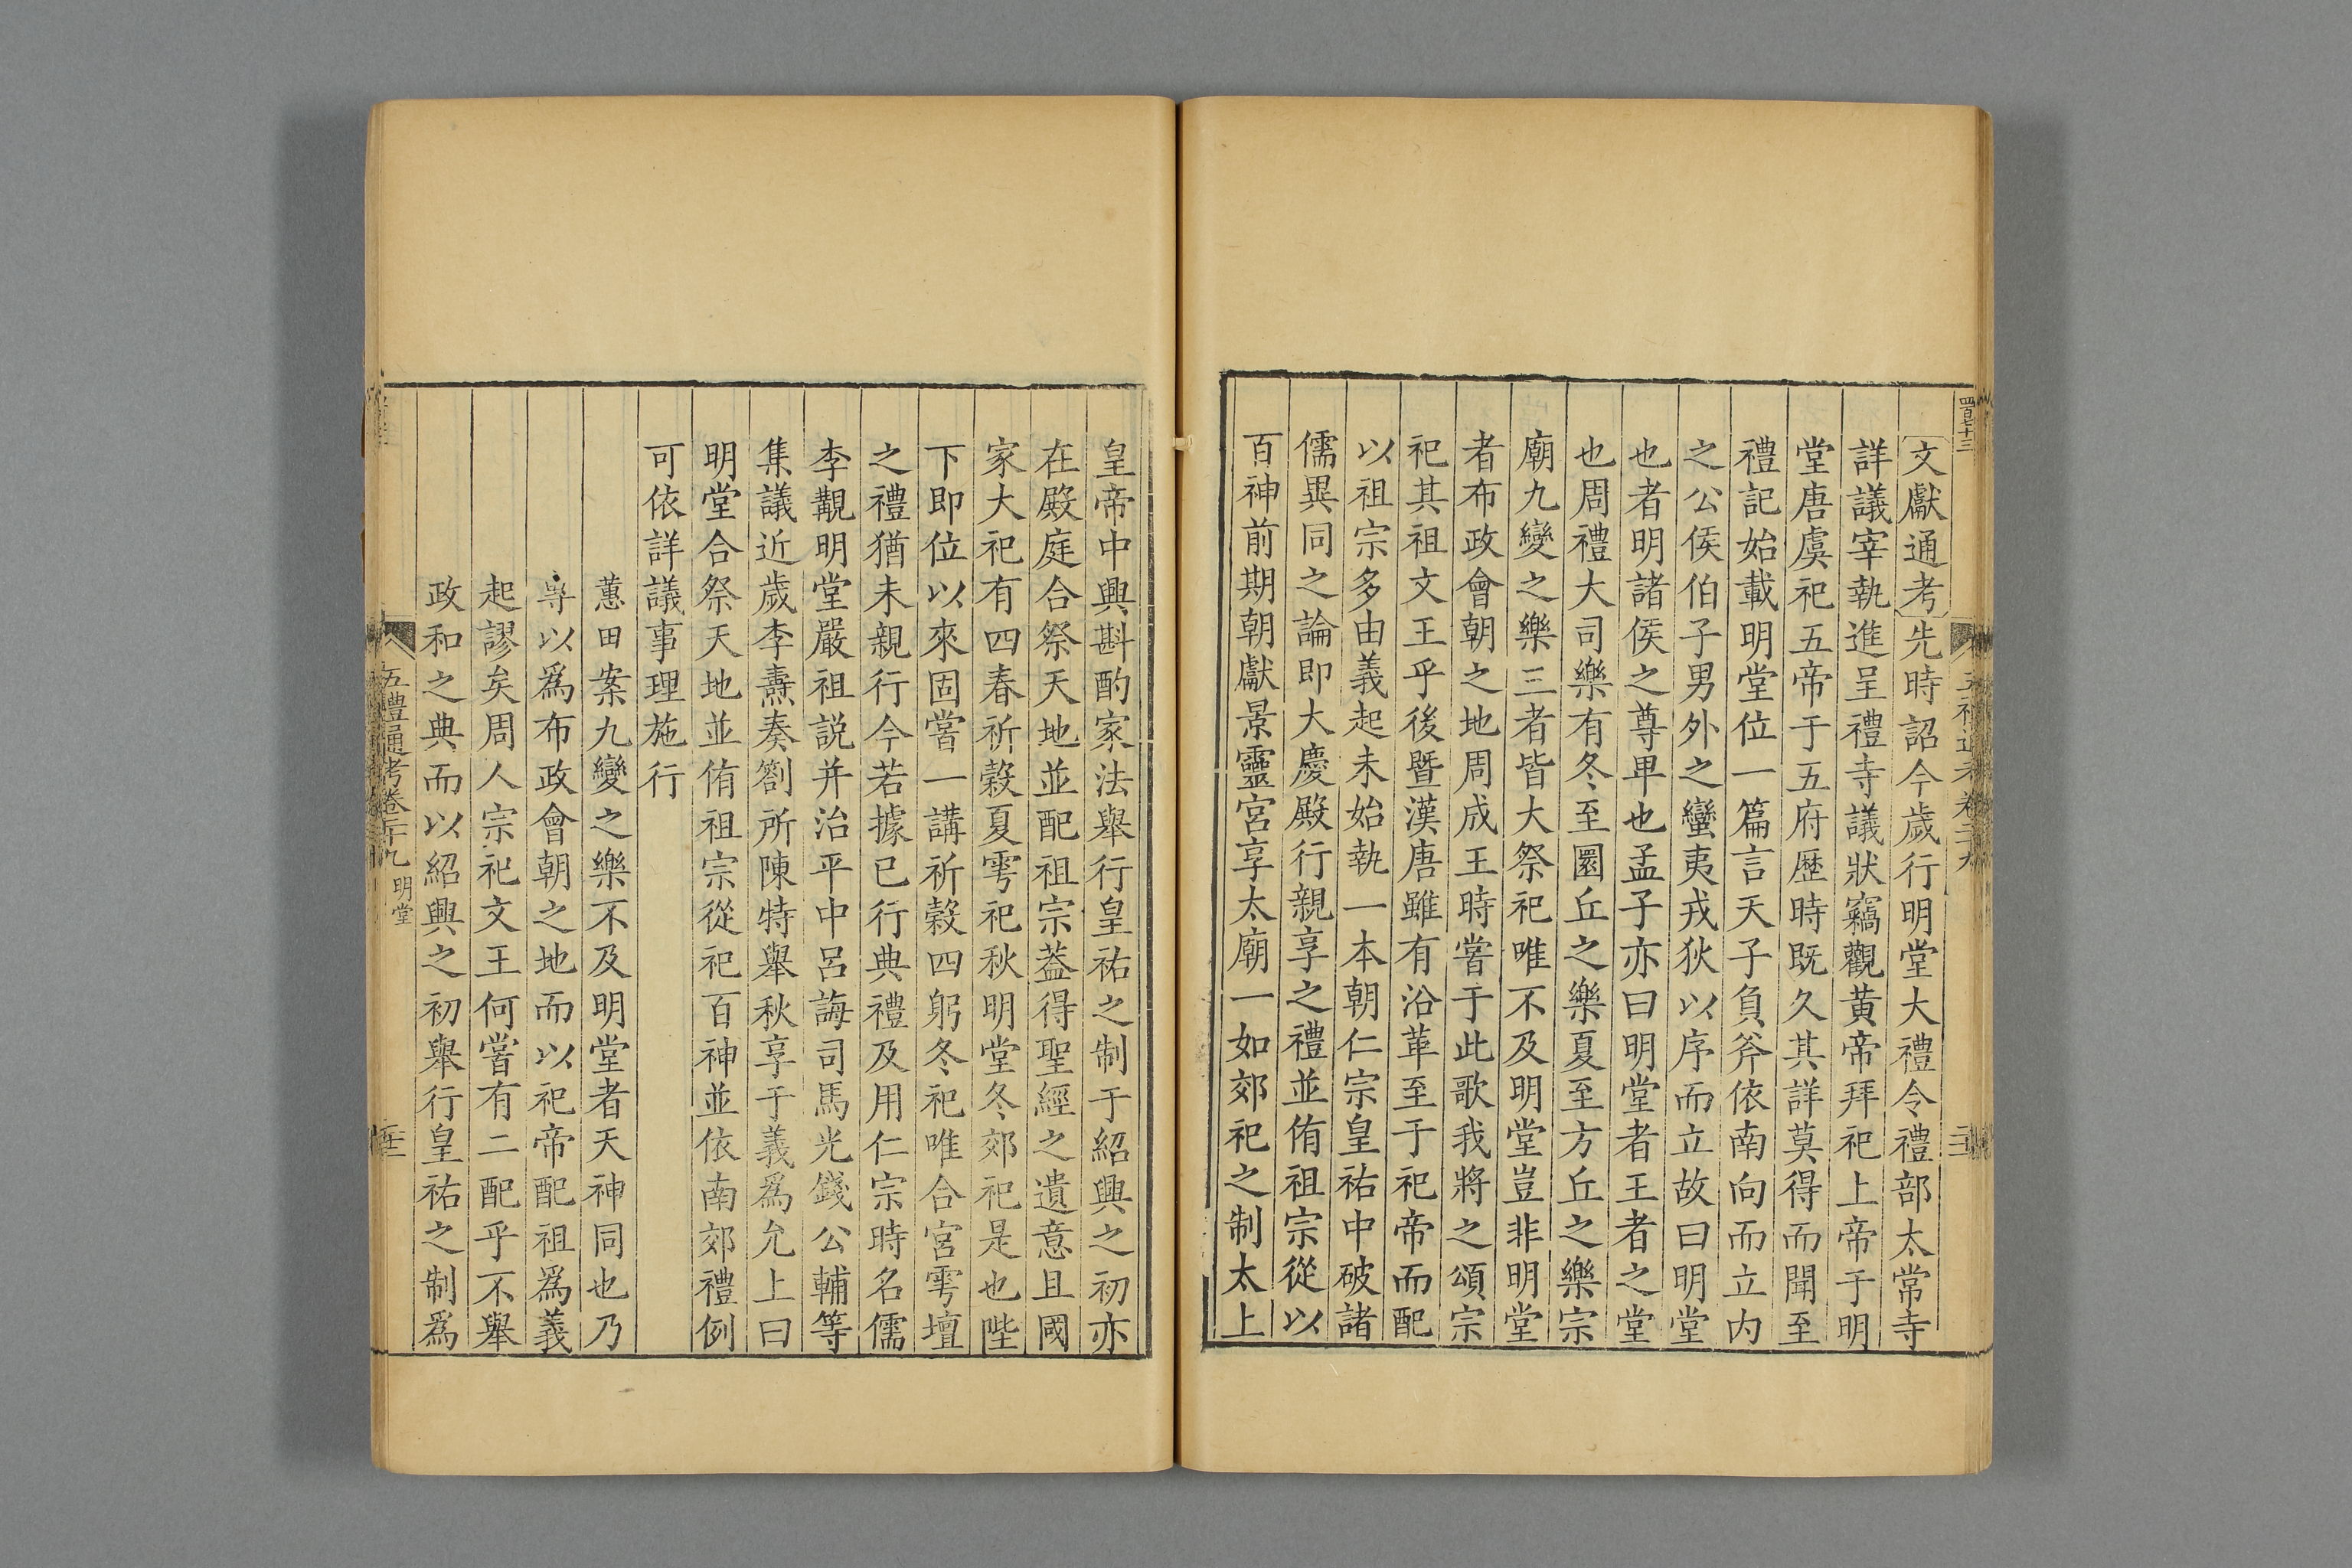 四百七十三
文獻通考先時詔今歲行明堂大禮令禮部太常寺
詳議宰執進呈禮寺議狀竊觀黃帝拜祀上帝于明
堂唐虞祀五帝于五府歷時既久其詳莫得而聞至
禮記始載明堂位一篇言天子負斧依南向而立内
之公侯伯子男外之蠻夷戎狄以序而立故曰明堂
也者明諸侯之尊卑也孟子亦曰明堂者王者之堂
也周禮大司樂有冬至圜丘之樂夏至方丘之樂宗
廟九變之樂三者皆大祭祀唯不及明堂豈非明堂
者布政會朝之地周成王時嘗于此歌我將之頌宗
祀其祖文王乎後暨漢唐雖有沿革至于祀帝而配
以祖宗多由義起未始執一本朝仁宗皇祐中破諸
儒異同之論即大慶殿行親享之禮並侑祖宗從以
百神前期朝獻景靈宮享太廟一如郊祀之制太上
皇帝中興斟酌家法舉行皇祐之制于紹興之初亦
在殿庭合祭天地並配祖宗蓋得聖經之遺意且國
家大祀有四春祈穀夏雩祀秋明堂冬郊祀是也陛
下即位以來固嘗一講祈穀四躬冬祀唯合宮雩壇
之禮猶未親行今若據已行典禮及用仁宗時名儒
李覯明堂嚴祖説并治平中呂誨司馬光錢公輔等
集議近歲李燾奏劄所陳特舉秋享于義爲允上曰
明堂合祭天地並侑祖宗從祀百神並依南郊禮例
可依詳議事理施行
蕙田案九變之樂不及明堂者天神同也乃
專以爲布政會朝之地而以祀帝配祖爲義
起謬矣周人宗祀文王何嘗有二配乎不舉
政和之典而以紹興之初舉行皇祐之制爲
五禮通考卷二十九 明堂